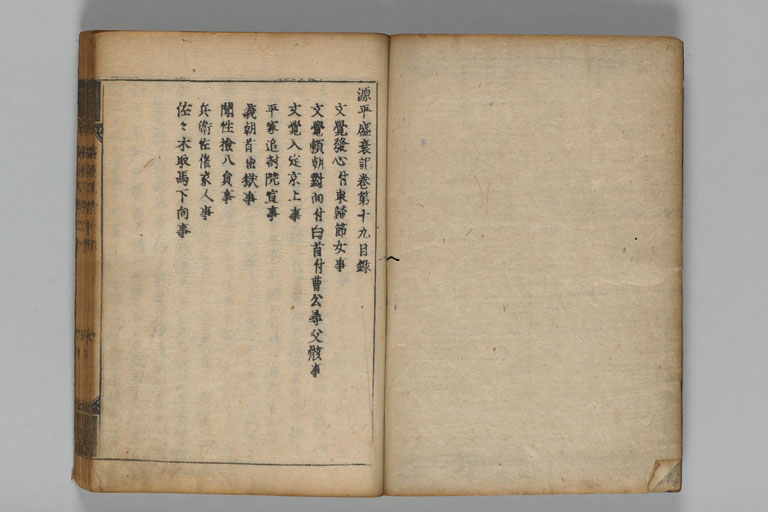 源平盛衰記卷第十九目録
文覺發心付東歸節女事
文覺頼朝對面付白首付曹公尋父骸事
文覺入定京上事
平家追討院宣事
義朝首出獄事
聞性撿八員事
兵衛佐催家人事
佐々木取馬下向事